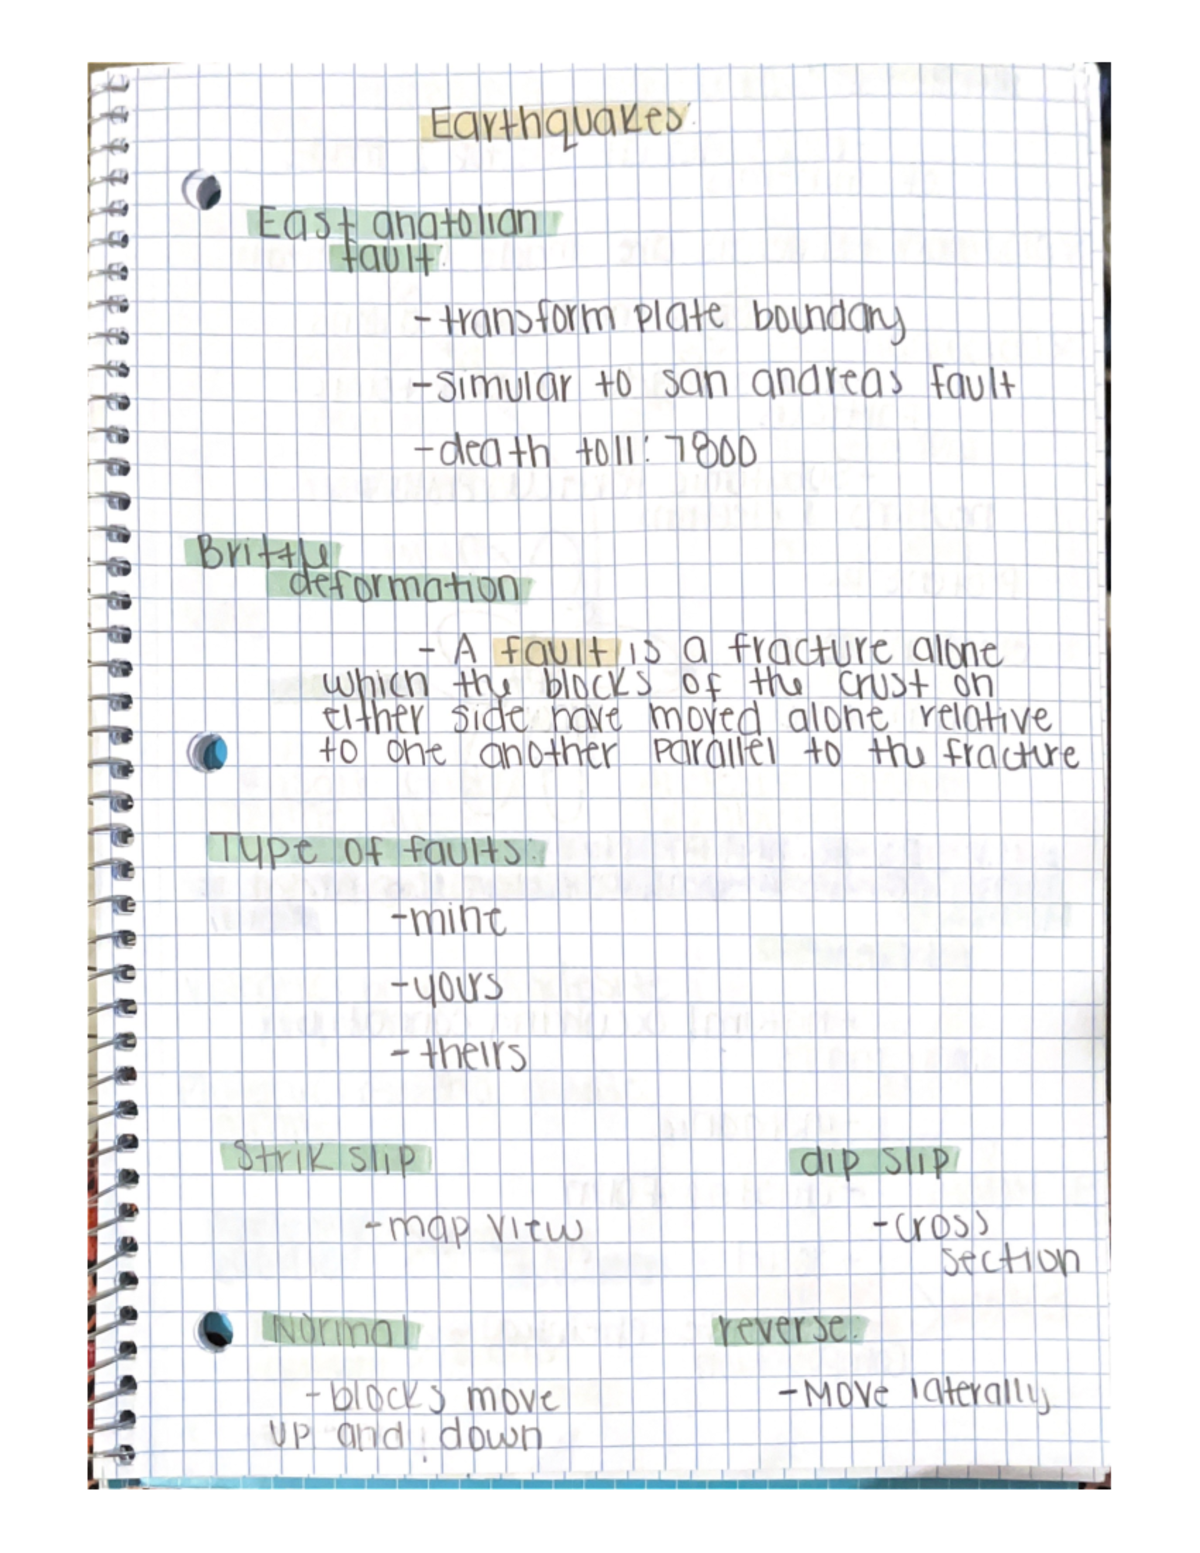 Earthquakes.
East anatolian
fault:
- transform plate boundary
- simular to san andreas fault
- death toll: 7800
Brittle
deformation
- A fault is a fracture alone
which the blocks of the crust on
either side have moved alone relative
to one another parallel to the fracture
Type of faults:
- mine
- yours
- theirs
Strik slip
dip slip
- map view
- cross
section
Normal
reverse:
- blocks move
up and down
- Move laterally